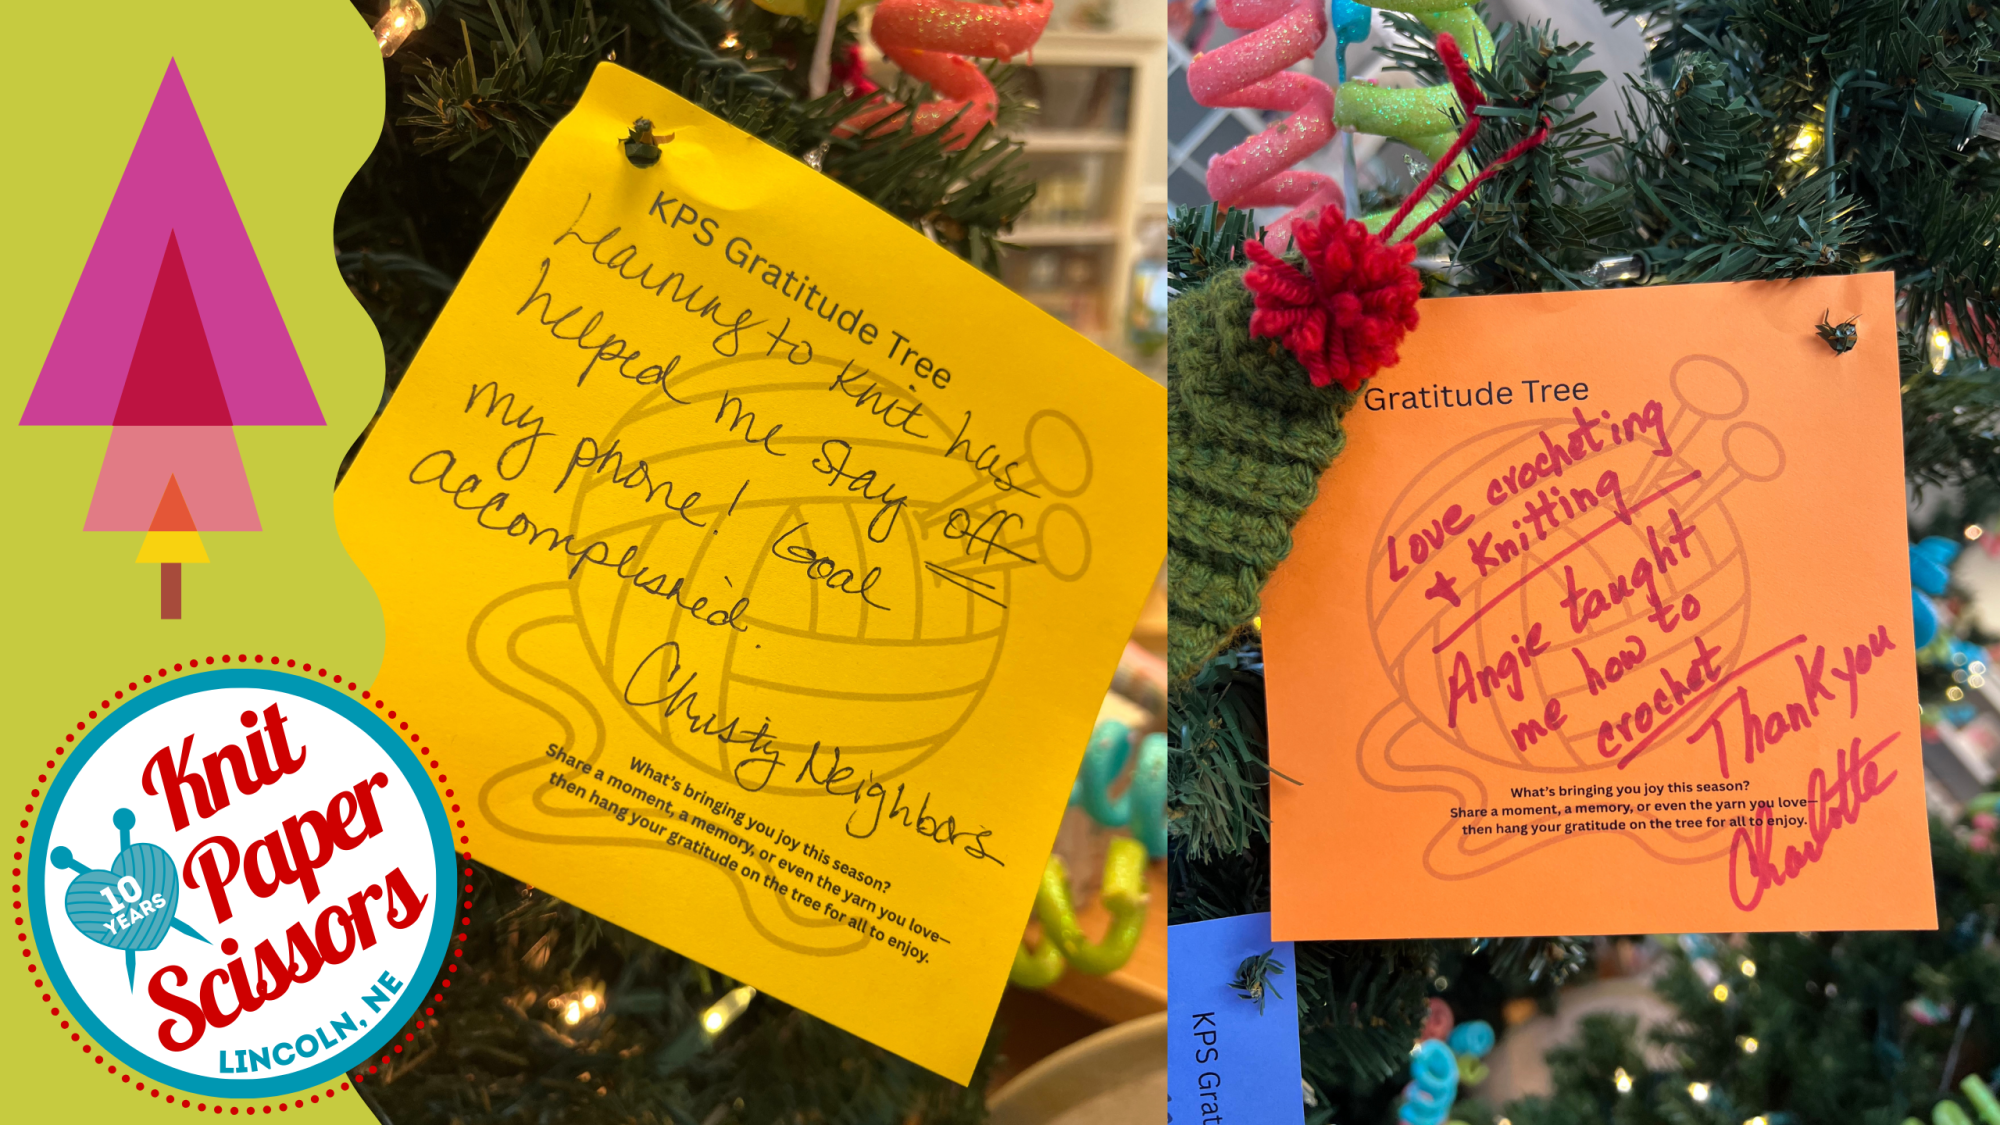 Knit
Paper
Scissors
10
YEARS
LINCOLN, NE
KPS Gratitude Tree
Learning to Knit has
helped me stay off
my phone! Goal
accomplished.
Christy Neighbors
What's bringing you joy this season?
Share a moment, a memory, or even the yarn you love—
then hang your gratitude on the tree for all to enjoy.
Gratitude Tree
Love crocheting
+ Knitting
Angie taught
me how to
crochet
Thank you
Charlotte
What's bringing you joy this season?
Share a moment, a memory, or even the yarn you love—
then hang your gratitude on the tree for all to enjoy.
KPS Grat